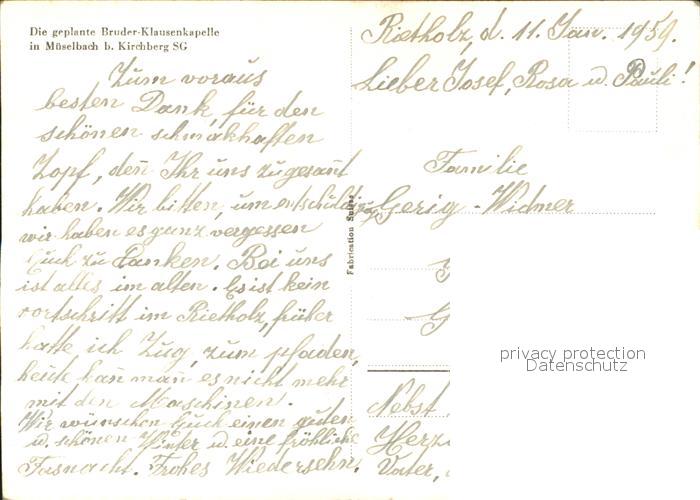 Die geplante Bruder-Klausenkapelle
in Müselbach b. Kirchberg SG
Rietholz, d. 11. Jan. 1959.
Lieber Josef, Rosa u. Pauli!
Zum voraus
besten Dank, für den
schönen schmakhaften
Zopf, den̄ Ihr uns zugesant
haben. Wir bitten, um entschuldi
gung
wir haben es ganz vergessen
Euch zu Danken. Bei uns
ist alles im alten. Es ist kein
vortschritt im Rietholz, früher
hatte ich Zug, zum pfaden,
heute kan̄ man̄ es nicht mehr
mit den Maschinen.
Wir wünschen Euch einen guten
u. schönen Winter u. eine fröhliche
Fasnacht. Frohes Wiedersehn,
Familie
Gerig-Widmer
Nebst
Herz
Vater,
Fabrication Suisse
privacy protection
Datenschutz